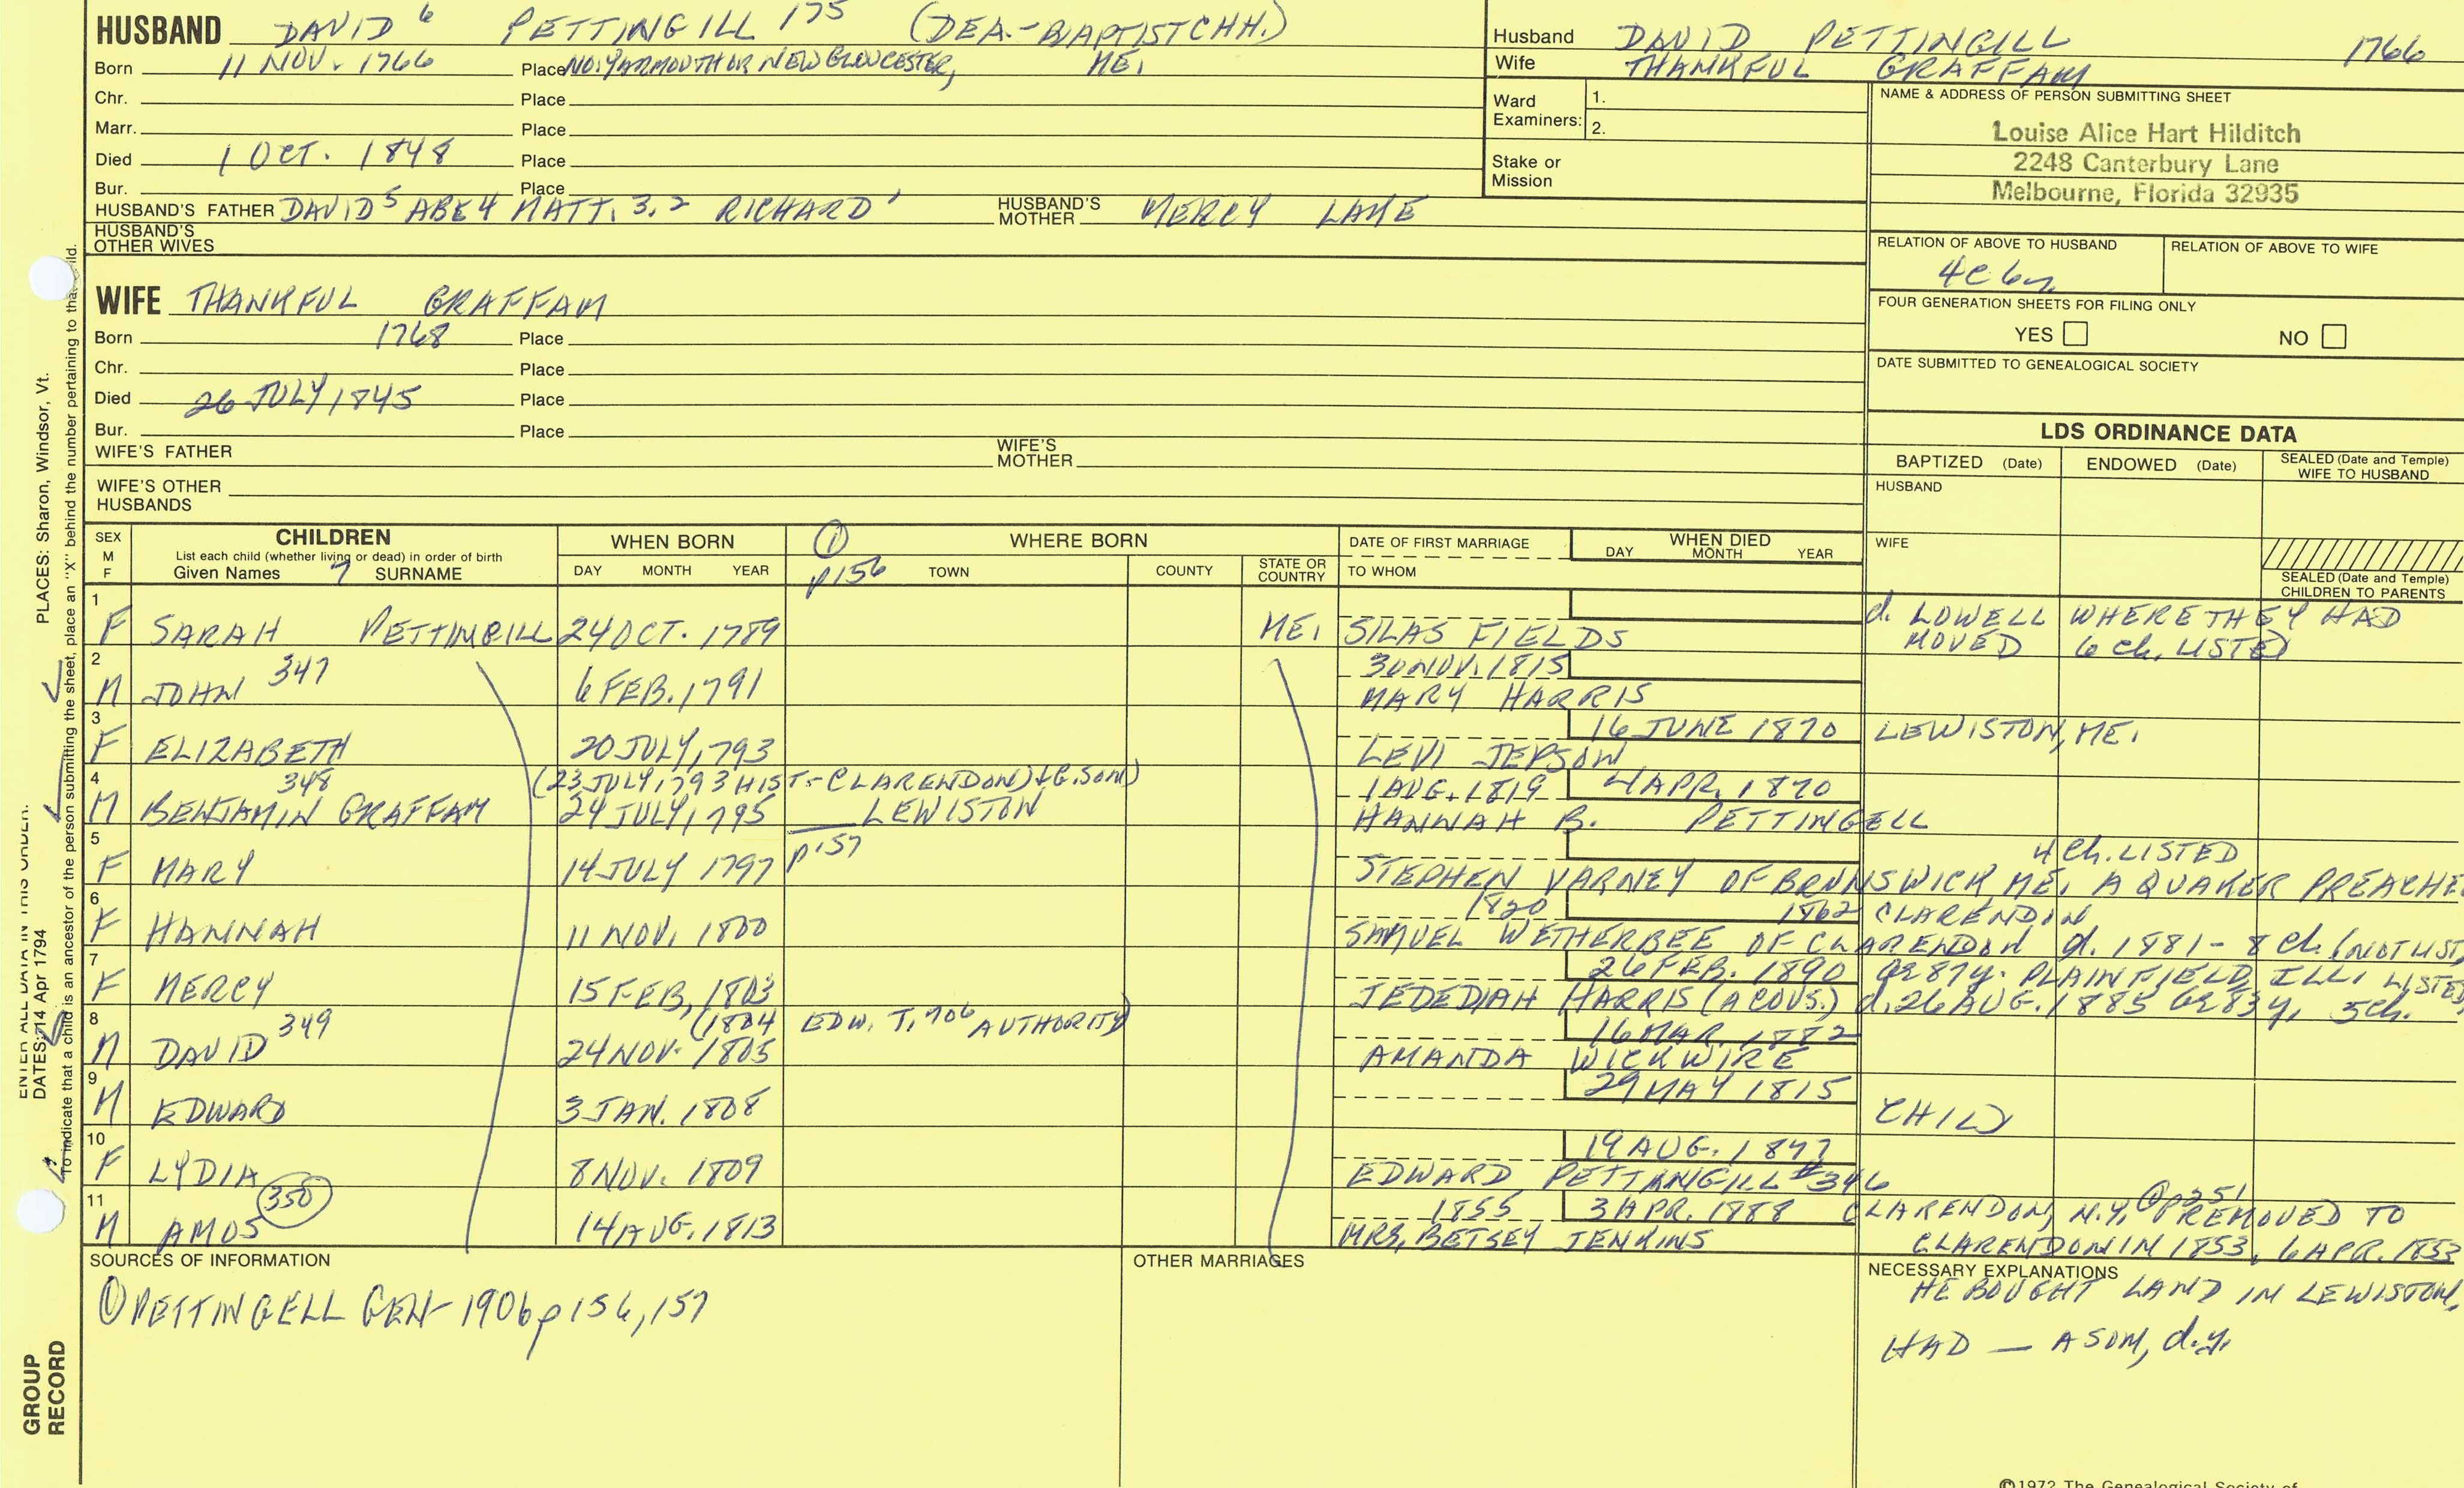 HUSBAND DAVID 6 PETTINGILL 175 (DEA.-BAPTIST CHH.)
Born 11 NOV. 1766 Place NO. YARMOUTH OR NEW GLOUCESTER, ME.
Chr. Place
Marr. Place
Died 1 OCT. 1848 Place
Bur. Place
HUSBAND'S FATHER DAVID 5 ABE 4 MATT. 3,2 RICHARD 1 HUSBAND'S MOTHER MERCY LANE
HUSBAND'S OTHER WIVES
Husband DAVID PETTINGILL 1766
Wife THANKFUL GRAFFAM
Ward Examiners: 1.
2.
Stake or Mission
NAME & ADDRESS OF PERSON SUBMITTING SHEET
Louise Alice Hart Hilditch
2248 Canterbury Lane
Melbourne, Florida 32935
RELATION OF ABOVE TO HUSBAND RELATION OF ABOVE TO WIFE
4c 6r
FOUR GENERATION SHEETS FOR FILING ONLY
YES NO
DATE SUBMITTED TO GENEALOGICAL SOCIETY
WIFE THANKFUL GRAFFAM
Born 1768 Place
Chr. Place
Died 26 JULY 1845 Place
Bur. Place
WIFE'S FATHER WIFE'S MOTHER
WIFE'S OTHER HUSBANDS
LDS ORDINANCE DATA
BAPTIZED (Date) ENDOWED (Date) SEALED (Date and Temple) WIFE TO HUSBAND
HUSBAND
WIFE
SEALED (Date and Temple) CHILDREN TO PARENTS
SEX M F CHILDREN WHEN BORN ① WHERE BORN DATE OF FIRST MARRIAGE WHEN DIED
List each child (whether living or dead) in order of birth DAY MONTH YEAR
Given Names 7 SURNAME DAY MONTH YEAR p156 TOWN COUNTY STATE OR COUNTRY TO WHOM
1 d. LOWELL WHERE THEY HAD
F SARAH PETTINGILL 24 OCT. 1789 ME. SILAS FIELDS MOVED 6 Ch. LISTED
2 347 30 NOV. 1815
M JOHN 6 FEB. 1791 MARY HARRIS
3 16 JUNE 1870 LEWISTON, ME.
F ELIZABETH 20 JULY 1793 LEVI JEPSON
4 348 (23 JULY 1793 HIST.-CLARENDON) + G. SON) 1 AUG. 1819 4 APR. 1870
M BENJAMIN GRAFFAM 24 JULY 1795 LEWISTON HANNAH B. PETTINGELL
5 p157 4 Ch. LISTED
F MARY 14 JULY 1797 STEPHEN VARNEY OF BRUNSWICK ME. A QUAKER PREACHE
6 1820 1862 CLARENDON
F HANNAH 11 NOV. 1800 SAMUEL WETHERBEE OF CLARENDON d. 1881 - 8 Ch. (NOT LIST
7 26 FEB. 1890 ae 87y. PLAINFIELD, ILL. LISTED
F MERCY 15 FEB. 1803 JEDEDIAH HARRIS (A COUS.) d. 26 AUG. 1885 ae 83y, 5 Ch.
8 349 (1804 EDW. T. '906 AUTHORITY) 16 MAR. 1882
M DAVID 24 NOV. 1805 AMANDA WICKWIRE
9 29 MAY 1815
M EDWARD 3 JAN. 1808 CHILD
10 19 AUG. 1847
F LYDIA 8 NOV. 1809 EDWARD PETTANGILL #346
11 350 1855 3 APR. 1888 CLARENDON, N.Y. ① p251 REMOVED TO
M AMOS 14 AUG. 1813 MRS. BETSEY JENKINS CLARENDON IN 1853, 6 APR. 1853
SOURCES OF INFORMATION OTHER MARRIAGES NECESSARY EXPLANATIONS
HE BOUGHT LAND IN LEWISTON,
① PETTINGELL GEN- 1906 p 156, 157
HAD — A SON, d.y.
PLACES: Sharon, Windsor, Vt.
ENTER ALL DATA IN THIS ORDER:
DATES: 14 Apr 1794
To indicate that a child is an ancestor of the person submitting the sheet, place an "X" behind the number pertaining to that child.
GROUP RECORD
©1972 The Genealogical Society of